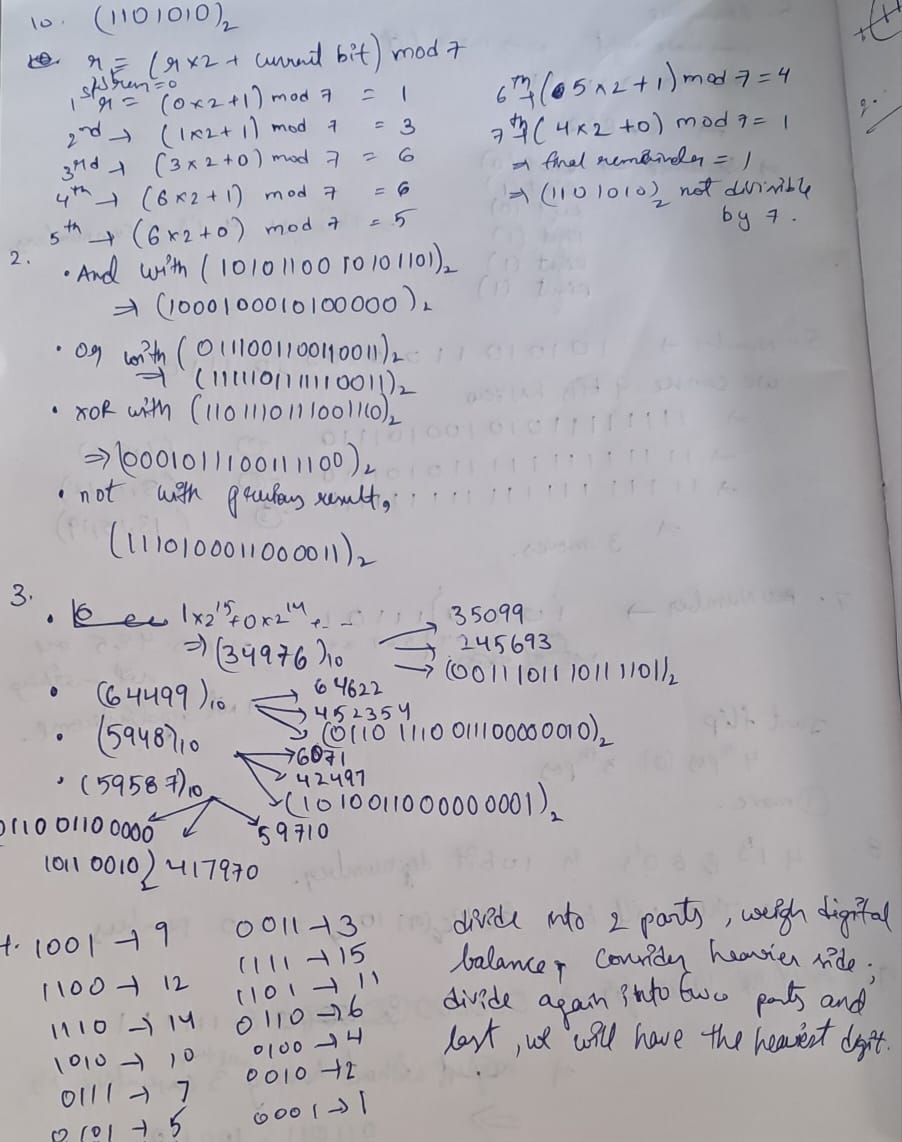 10. (1101010)₂
r = (r×2 + current bit) mod 7
start rem=0
1st r = (0×2+1) mod 7 = 1
2nd → (1×2+1) mod 7 = 3
3rd → (3×2+0) mod 7 = 6
4th → (6×2+1) mod 7 = 6
5th → (6×2+0) mod 7 = 5
6th → (5×2+1) mod 7 = 4
7th → (4×2+0) mod 7 = 1
→ final remainder = 1
⇒ (1101010)₂ not divisible
by 7.
2.
• And with (1010110010101101)₂
⇒ (1000100010100000)₂
• Or with (0111001100110011)₂
→ (1111101110110011)₂
• XOR with (1101110111001110)₂
⇒ (0001011100111100)₂
• not with previous result,
(1110100011000011)₂
3.
• 1×2¹⁵+0×2¹⁴+..
⇒ (34976)₁₀
→ 35099
→ 245693
→ (00111101110111101)₂
• (64499)₁₀
→ 64622
→ 452354
→ (0110111001110000010)₂
• (5948)₁₀
→ 6071
→ 42497
→ (1010011000000001)₂
• (59587)₁₀
→ 59710
417970
01100110 0000
1011 0010)₂
1001 → 9
1100 → 12
1110 → 14
1010 → 10
0111 → 7
0101 → 5
0011 → 3
1111 → 15
1101 → 11
0110 → 6
0100 → 4
0010 → 2
0001 → 1
divide into 2 parts, weigh digital
balance, consider heavier side.
divide again into two parts and
last, we will have the heaviest digit.